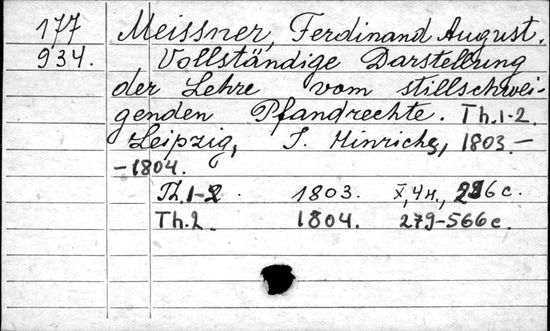 177 Meissner, Ferdinand August.
934. Vollständige Darstellung
der Lehre vom stillschwei-
genden Pfandrechte. Th.1-2.
Leipzig, J. Hinrichs, 1803.-
-1804.
Th.1- . 1803. X, 4н., с.
Th.2. 1804. 279-566 c.